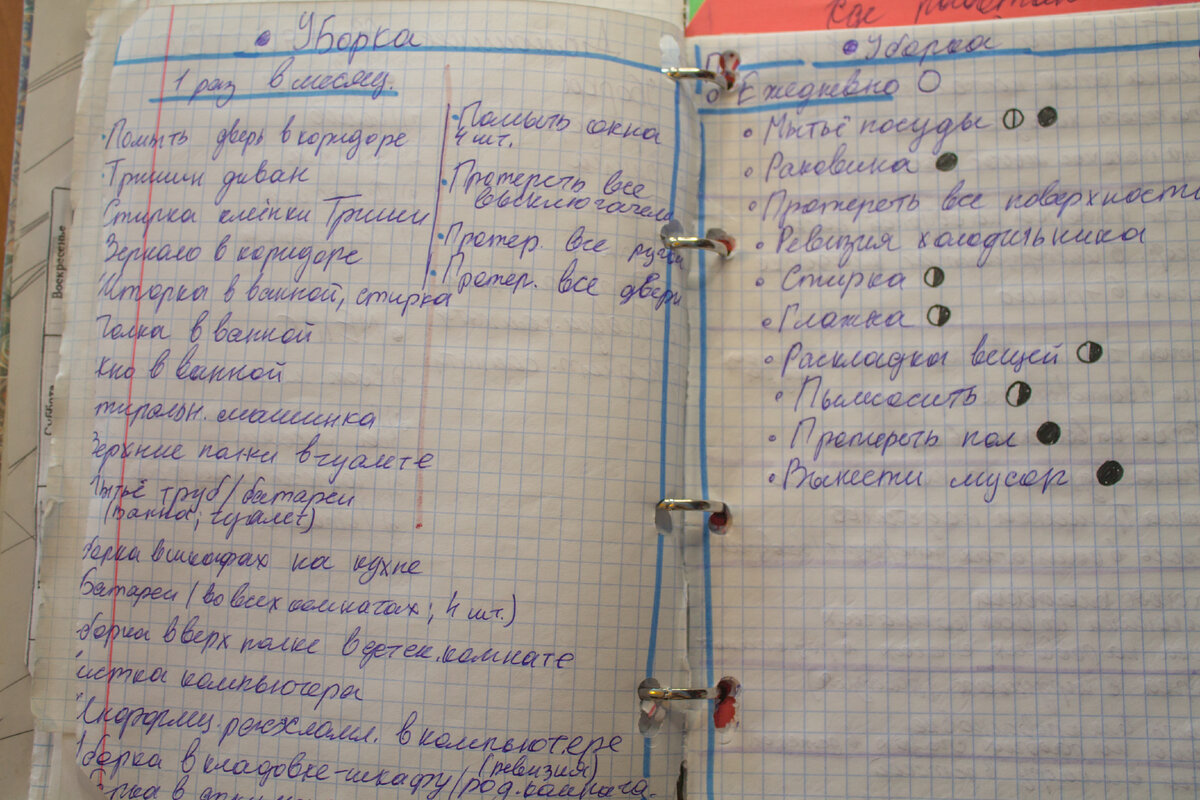 • Уборка
1 раз в месяц.
• Помыть дверь в коридоре
• Тришин диван
Стирка клеёнки Триши
Зеркало в коридоре
Шторка в ванной, стирка
в ванной
в ванной
машинка
Верхние полки в туалете
Мытьё труб/батареи
(Ванна; туалет)
в шкафах на кухне
Батареи (во всех комнатах; 4 шт.)
в верх полке в детск. комнате
компьютера
расхламл. в компьютере
Уборка в кладовке-шкафу (род. комната.
(ревизия)
• Помыть окна
4 шт.
• Протереть все
выключатели
• Протер. все ручки
• Протер. все двери
• Уборка
Ежедневно
• Мытьё посуды
• Раковина
• Протереть все поверхности
• Ревизия холодильника
• Стирка
• Глажка
• Раскладка вещей
• Пылесосить
• Протереть пол
• Вынести мусор
Воскресенье
Суббота